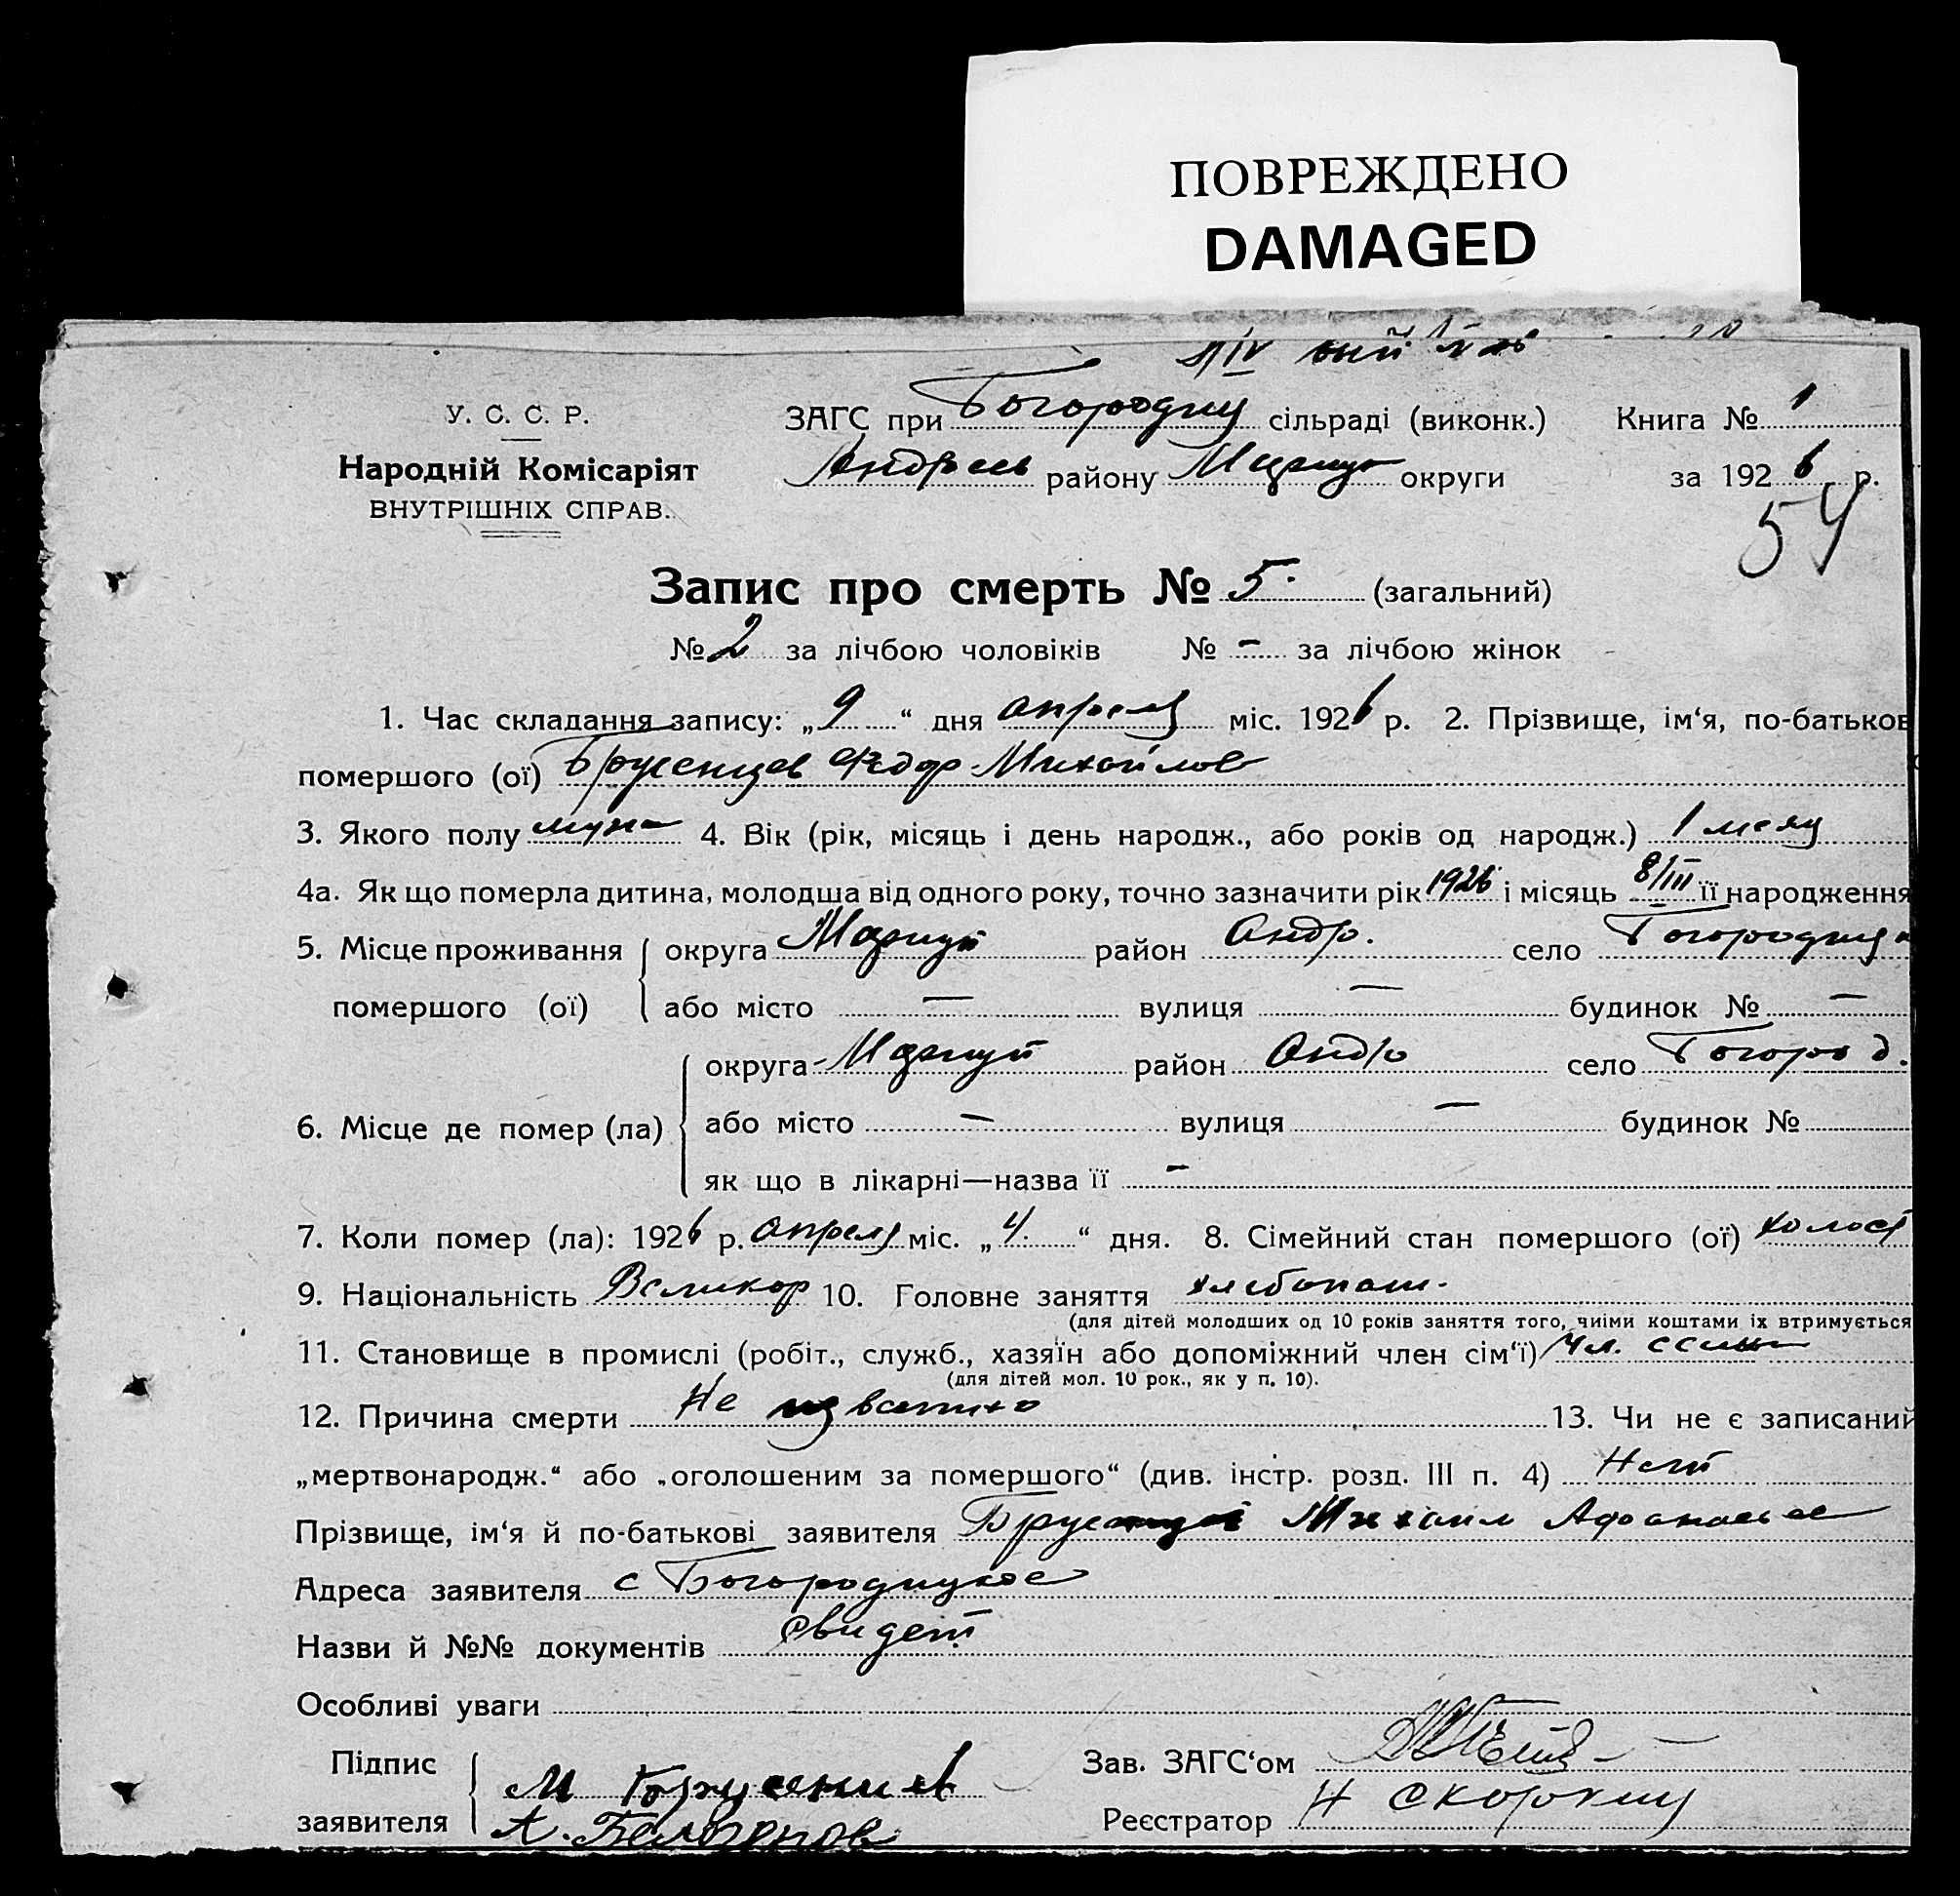 ПОВРЕЖДЕНО
DAMAGED
У. С. С. Р.
Народній Комісаріят
ВНУТРІШНІХ СПРАВ.
ЗАГС при Богородиц сільраді (виконк.) Книга № 1
Андреев району Мариуп округи за 1926 р.
54
Запис про смерть № 5. (загальний)
№ 2 за лічбою чоловіків № – за лічбою жінок
1. Час складання запису: „9“ дня апреля міс. 1926 р. 2. Прізвище, ім‘я, по-батьков
помершого (ої) Брусенцев Федор Михайлов
3. Якого полу муж 4. Вік (рік, місяць і день народж., або років од народж.) 1 месяц
4а. Як що померла дитина, молодша від одного року, точно зазначити рік 1926 і місяць 8/III її народження
5. Місце проживання округа Мариуп район Андр. село Богородицк
помершого (ої) або місто — вулиця — будинок № —
округа Мариуп район Андр село Богород.
6. Місце де помер (ла) або місто — вулиця — будинок №
як що в лікарні—назва її –
7. Коли помер (ла): 1926 р. апреля міс. „4.“ дня. 8. Сімейний стан помершого (ої) холост
9. Національність Великор 10. Головне заняття хлебопаш.
(для дітей молодших од 10 років заняття того, чиїми коштами їх втримується
11. Становище в промислі (робіт., служб., хазяїн або допоміжний член сім‘ї) Чл. семьи
(для дітей мол. 10 рок., як у п. 10).
12. Причина смерти Не известно 13. Чи не є записаний
„мертвонародж.“ або „оголошеним за помершого“ (див. інстр. розд. III п. 4) Нет
Прізвище, ім‘я й по-батькові заявителя Брусенцев Михаил Афанасьев
Адреса заявителя с Богородицкое
Назви й №№ документів свидет
Особливі уваги
Підпис
заявителя
М Брусенцев
Зав. ЗАГС‘ом
Реєстратор Н Скорокин